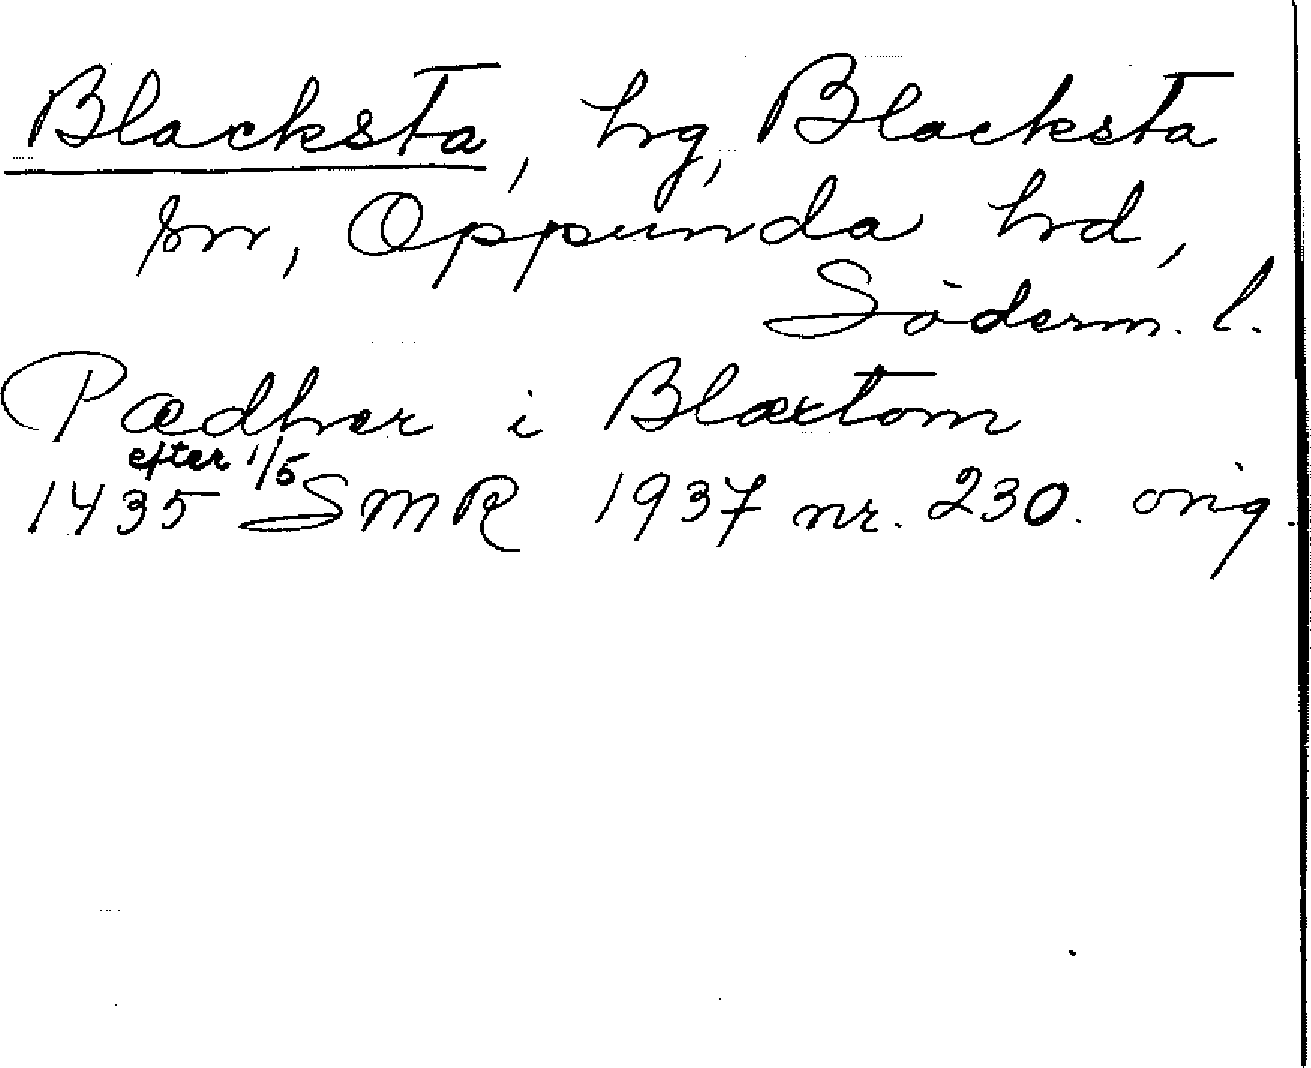 Blacksta, hg, Blacksta
sn, Oppunda hd,
Söderm. l.
Pædher i Blæxtom
efter 1/5
1435 SMR 1937 nr. 230. orig.